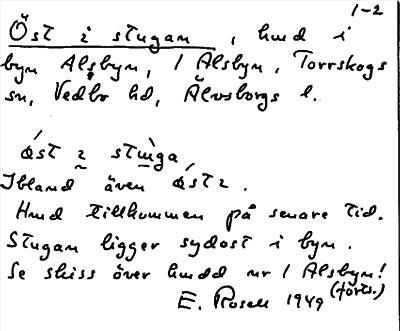 1-2
Öst i stugan, hmd i
byn Alsbyn, 1 Alsbyn, Torrskogs
sn, Vedbo hd, Älvsborgs l.
ǿst ɩ stuga
Ibland även ǿstɩ.
Hmd tillkommen på senare tid.
Stugan ligger sydost i byn.
Se skiss över hmdd nr 1 Alsbyn!
(forts.)
E. Rosell 1949